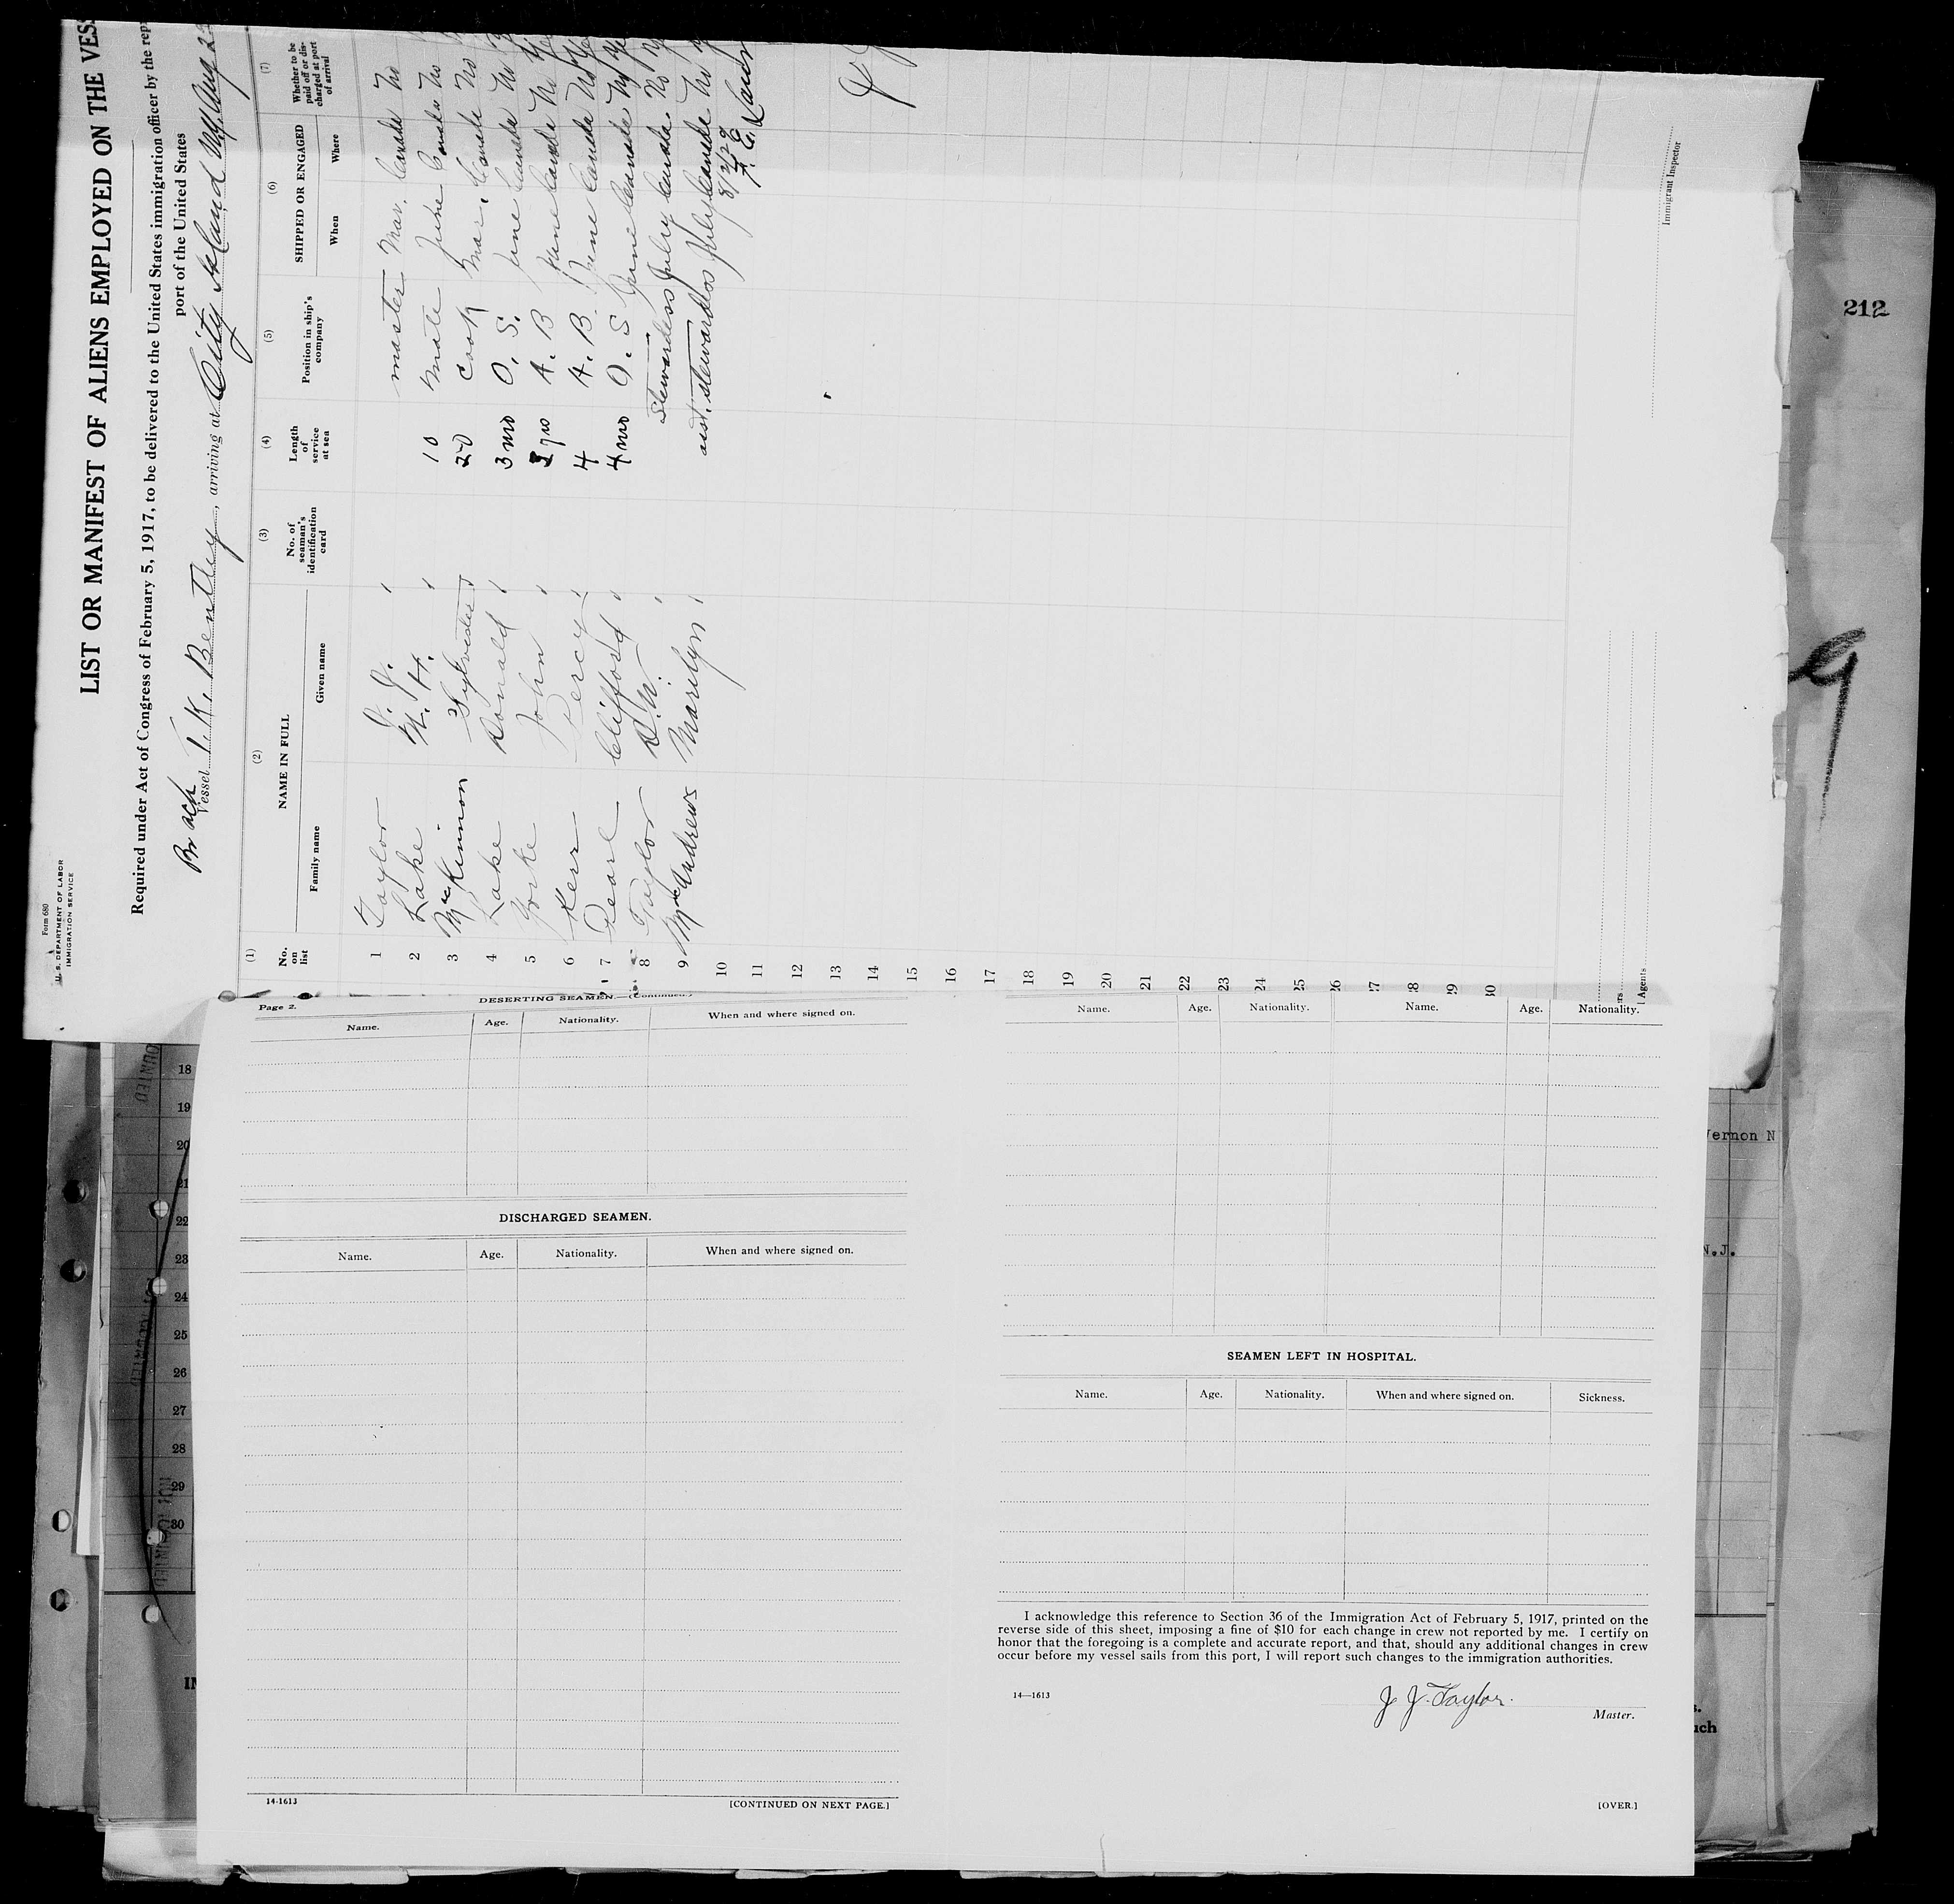 Form 680
U. S. DEPARTMENT OF LABOR
IMMIGRATION SERVICE
LIST OR MANIFEST OF ALIENS EMPLOYED ON THE VES
Required under Act of Congress of February 5, 1917, to be delivered to the United States immigration officer by the rep
port of the United States
Vessel T. K. Bentley, arriving at City Island N.Y. Aug 2
(1) (2) (3) (4) (5) (6) (7)
No. on list
NAME IN FULL
Family name Given name
No. of seaman's identification card
Length of service at sea
Position in ship's company
SHIPPED OR ENGAGED
When Where
Whether to be paid off or discharged at port of arrival
1 Taylor J. J. master Mar. Canada No
2 Lake 10 mate June Canada No
3 McKinnon 20 cook Mar. Canada No
4 Lake Donald 3 mo O. S. June Canada No
5 Yorke John A. B June Canada No
6 Kerr Percy 4 A. B. June Canada No
7 Pearl Clifford 4 mo O. S June Canada No
8 Taylor Stewardess July Canada. No
9 McAndrews Marilyn asst. stewardess July Canada No
10
11
12
13
14
15
16
17
18
19
20
21
22
23
24
25
26
27
28
29
30
Immigrant Inspector
Agents
212
Page 2.
DESERTING SEAMEN.—(Continued.)
Name. Age. Nationality. When and where signed on.
DISCHARGED SEAMEN.
Name. Age. Nationality. When and where signed on.
14-1613
[CONTINUED ON NEXT PAGE.]
Name. Age. Nationality. Name. Age. Nationality.
SEAMEN LEFT IN HOSPITAL.
Name. Age. Nationality. When and where signed on. Sickness.
I acknowledge this reference to Section 36 of the Immigration Act of February 5, 1917, printed on the
reverse side of this sheet, imposing a fine of $10 for each change in crew not reported by me. I certify on
honor that the foregoing is a complete and accurate report, and that, should any additional changes in crew
occur before my vessel sails from this port, I will report such changes to the immigration authorities.
14—1613
J J. Taylor.
Master.
[OVER.]
18
19
20
21
22
23
24
25
26
27
28
29
30
Vernon N
N.J.